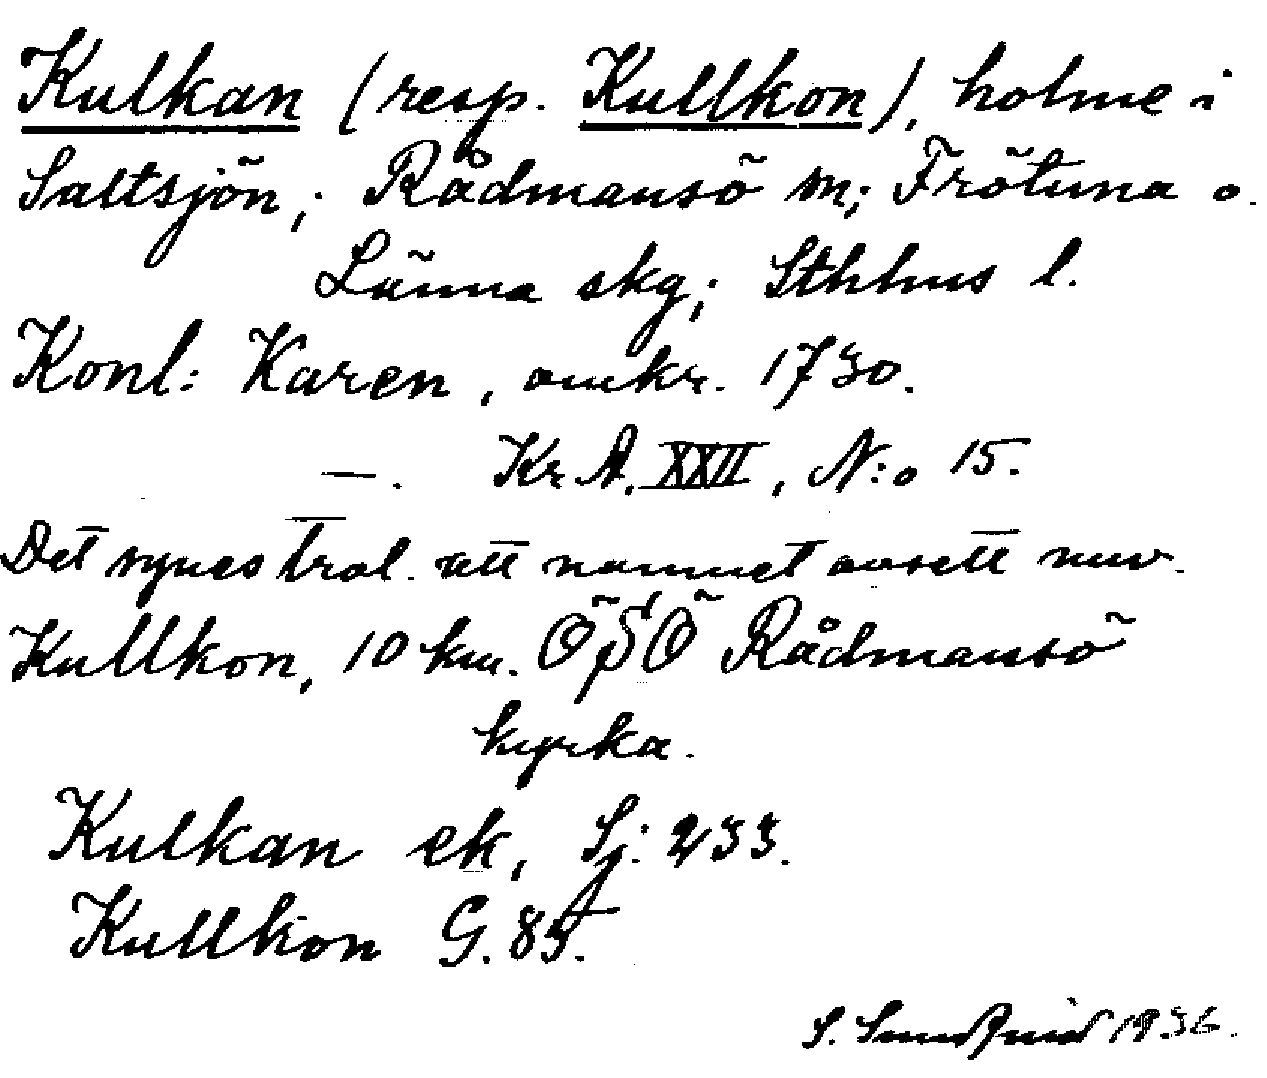 Kulkan (resp. Kullkon), holme i
Saltsjön; Rådmansö sn; Frötuna o.
Länna skg; Sthlms l.
Konl: Karen, omkr. 1730.
—. Kr. A. XXII, N:o 15.
Det synes trol. att namnet avsett nuv.
Kullkon, 10 km. ÖSÖ Rådmansö
kyrka.
Kulkan ek, Sj: 233.
Kullkon G. 85.
S. 1936.